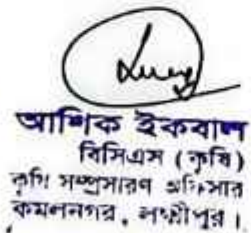 আশিক ইকবাল
বিসিএস (কৃষি)
কৃষি সম্প্রসারণ অফিসার
কমলনগর, লক্ষ্মীপুর।